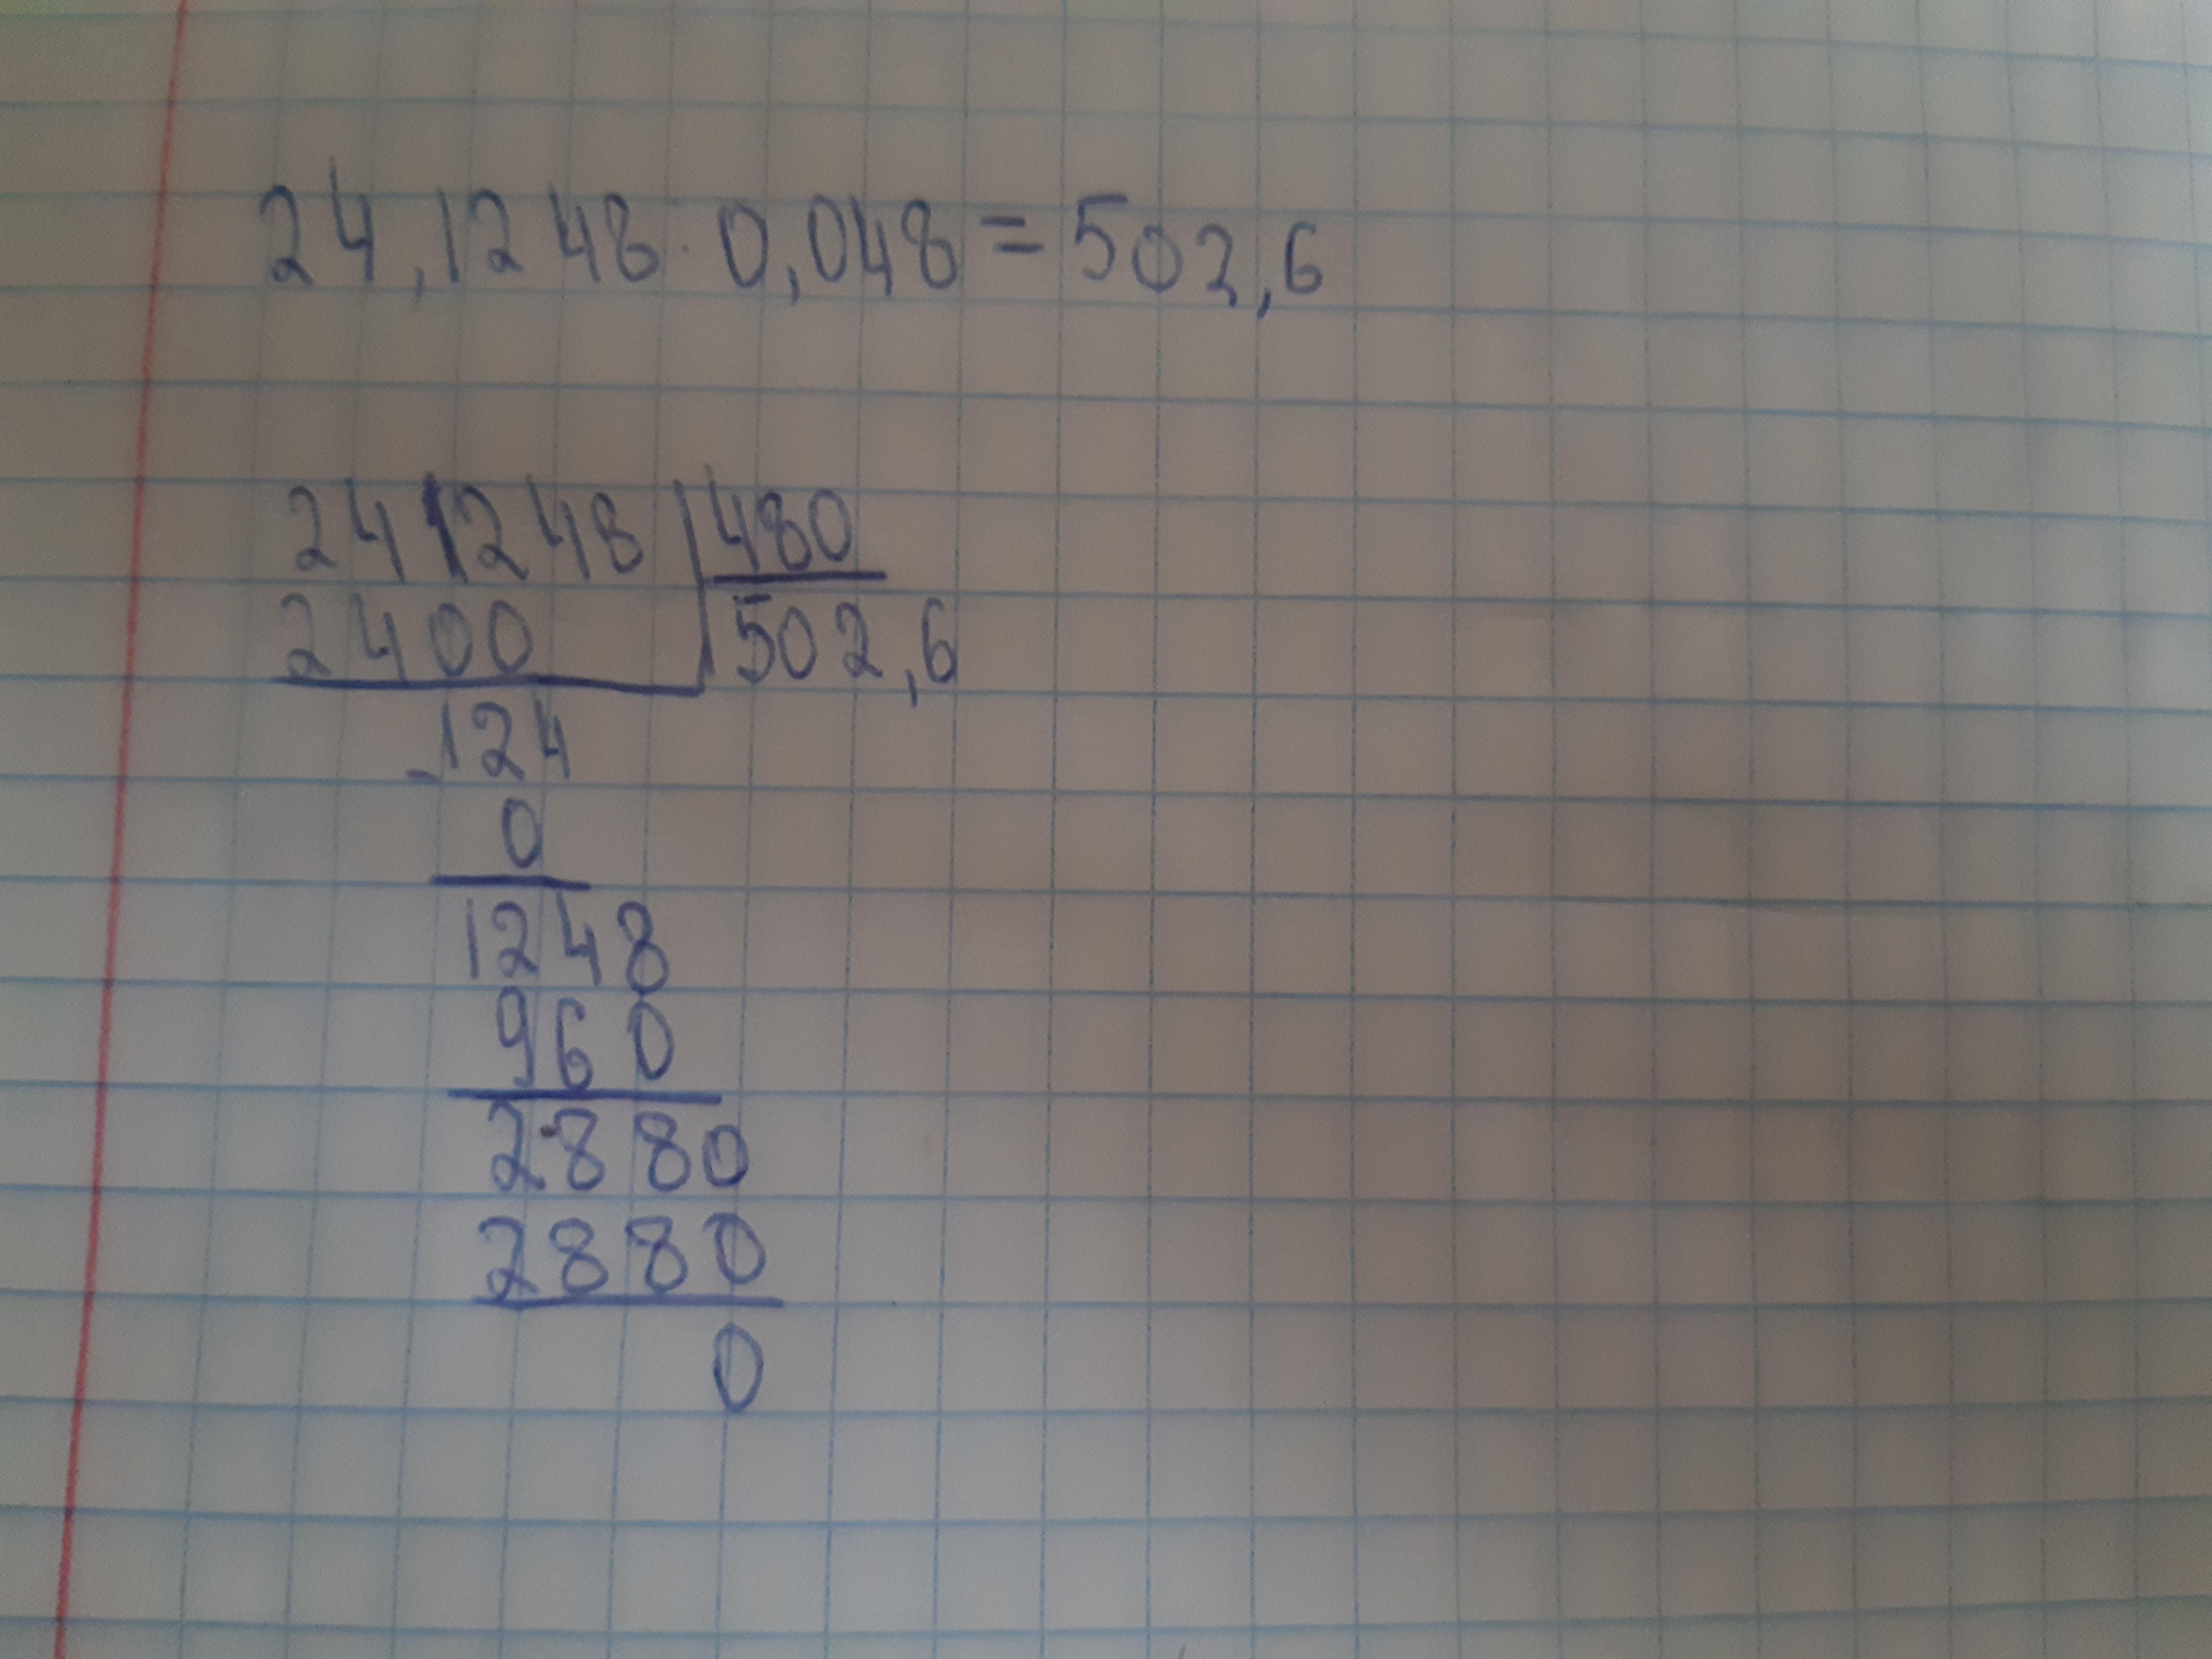 24,1248:0,048=502,6
241248|480
2400 502,6
-124
0
1248
960
2880
2880
0